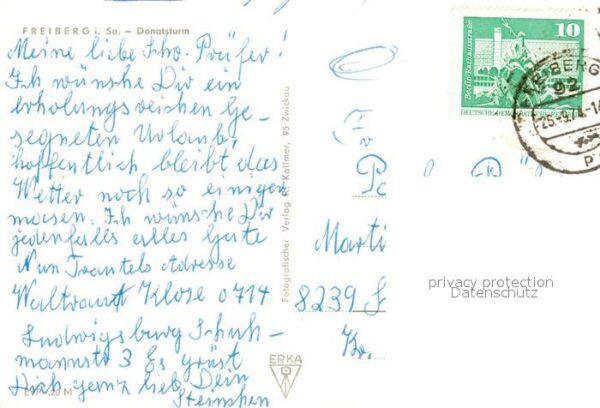 FREIBERG i. Sa. — Donatsturm
Meine liebe Schw. Prüfer!
Ich wünsche Dir ein
erholungsreichen Ge-
segneten Urlaub,
hoffentlich bleibt das
Wetter noch so einiger
masen. Ich wünsche Dir
jedenfalls alles Gute
Nun Trautels Adresse
Waltraut Klose 0714
Ludwigsburg Schuh-
mannstr 3 Es grüst
Dich ganz lieb Dein
Steinchen
EVP 0,20 M
Fotografischer Verlag R. Kallmer, 95 Zwickau
ERKA
10
Berlin Rathausstraße
DEUTSCHE DEMOKRATISCHE
FREIBERG
92
25-9.74-14
Marti
8239
Kr.
privacy protection
Datenschutz